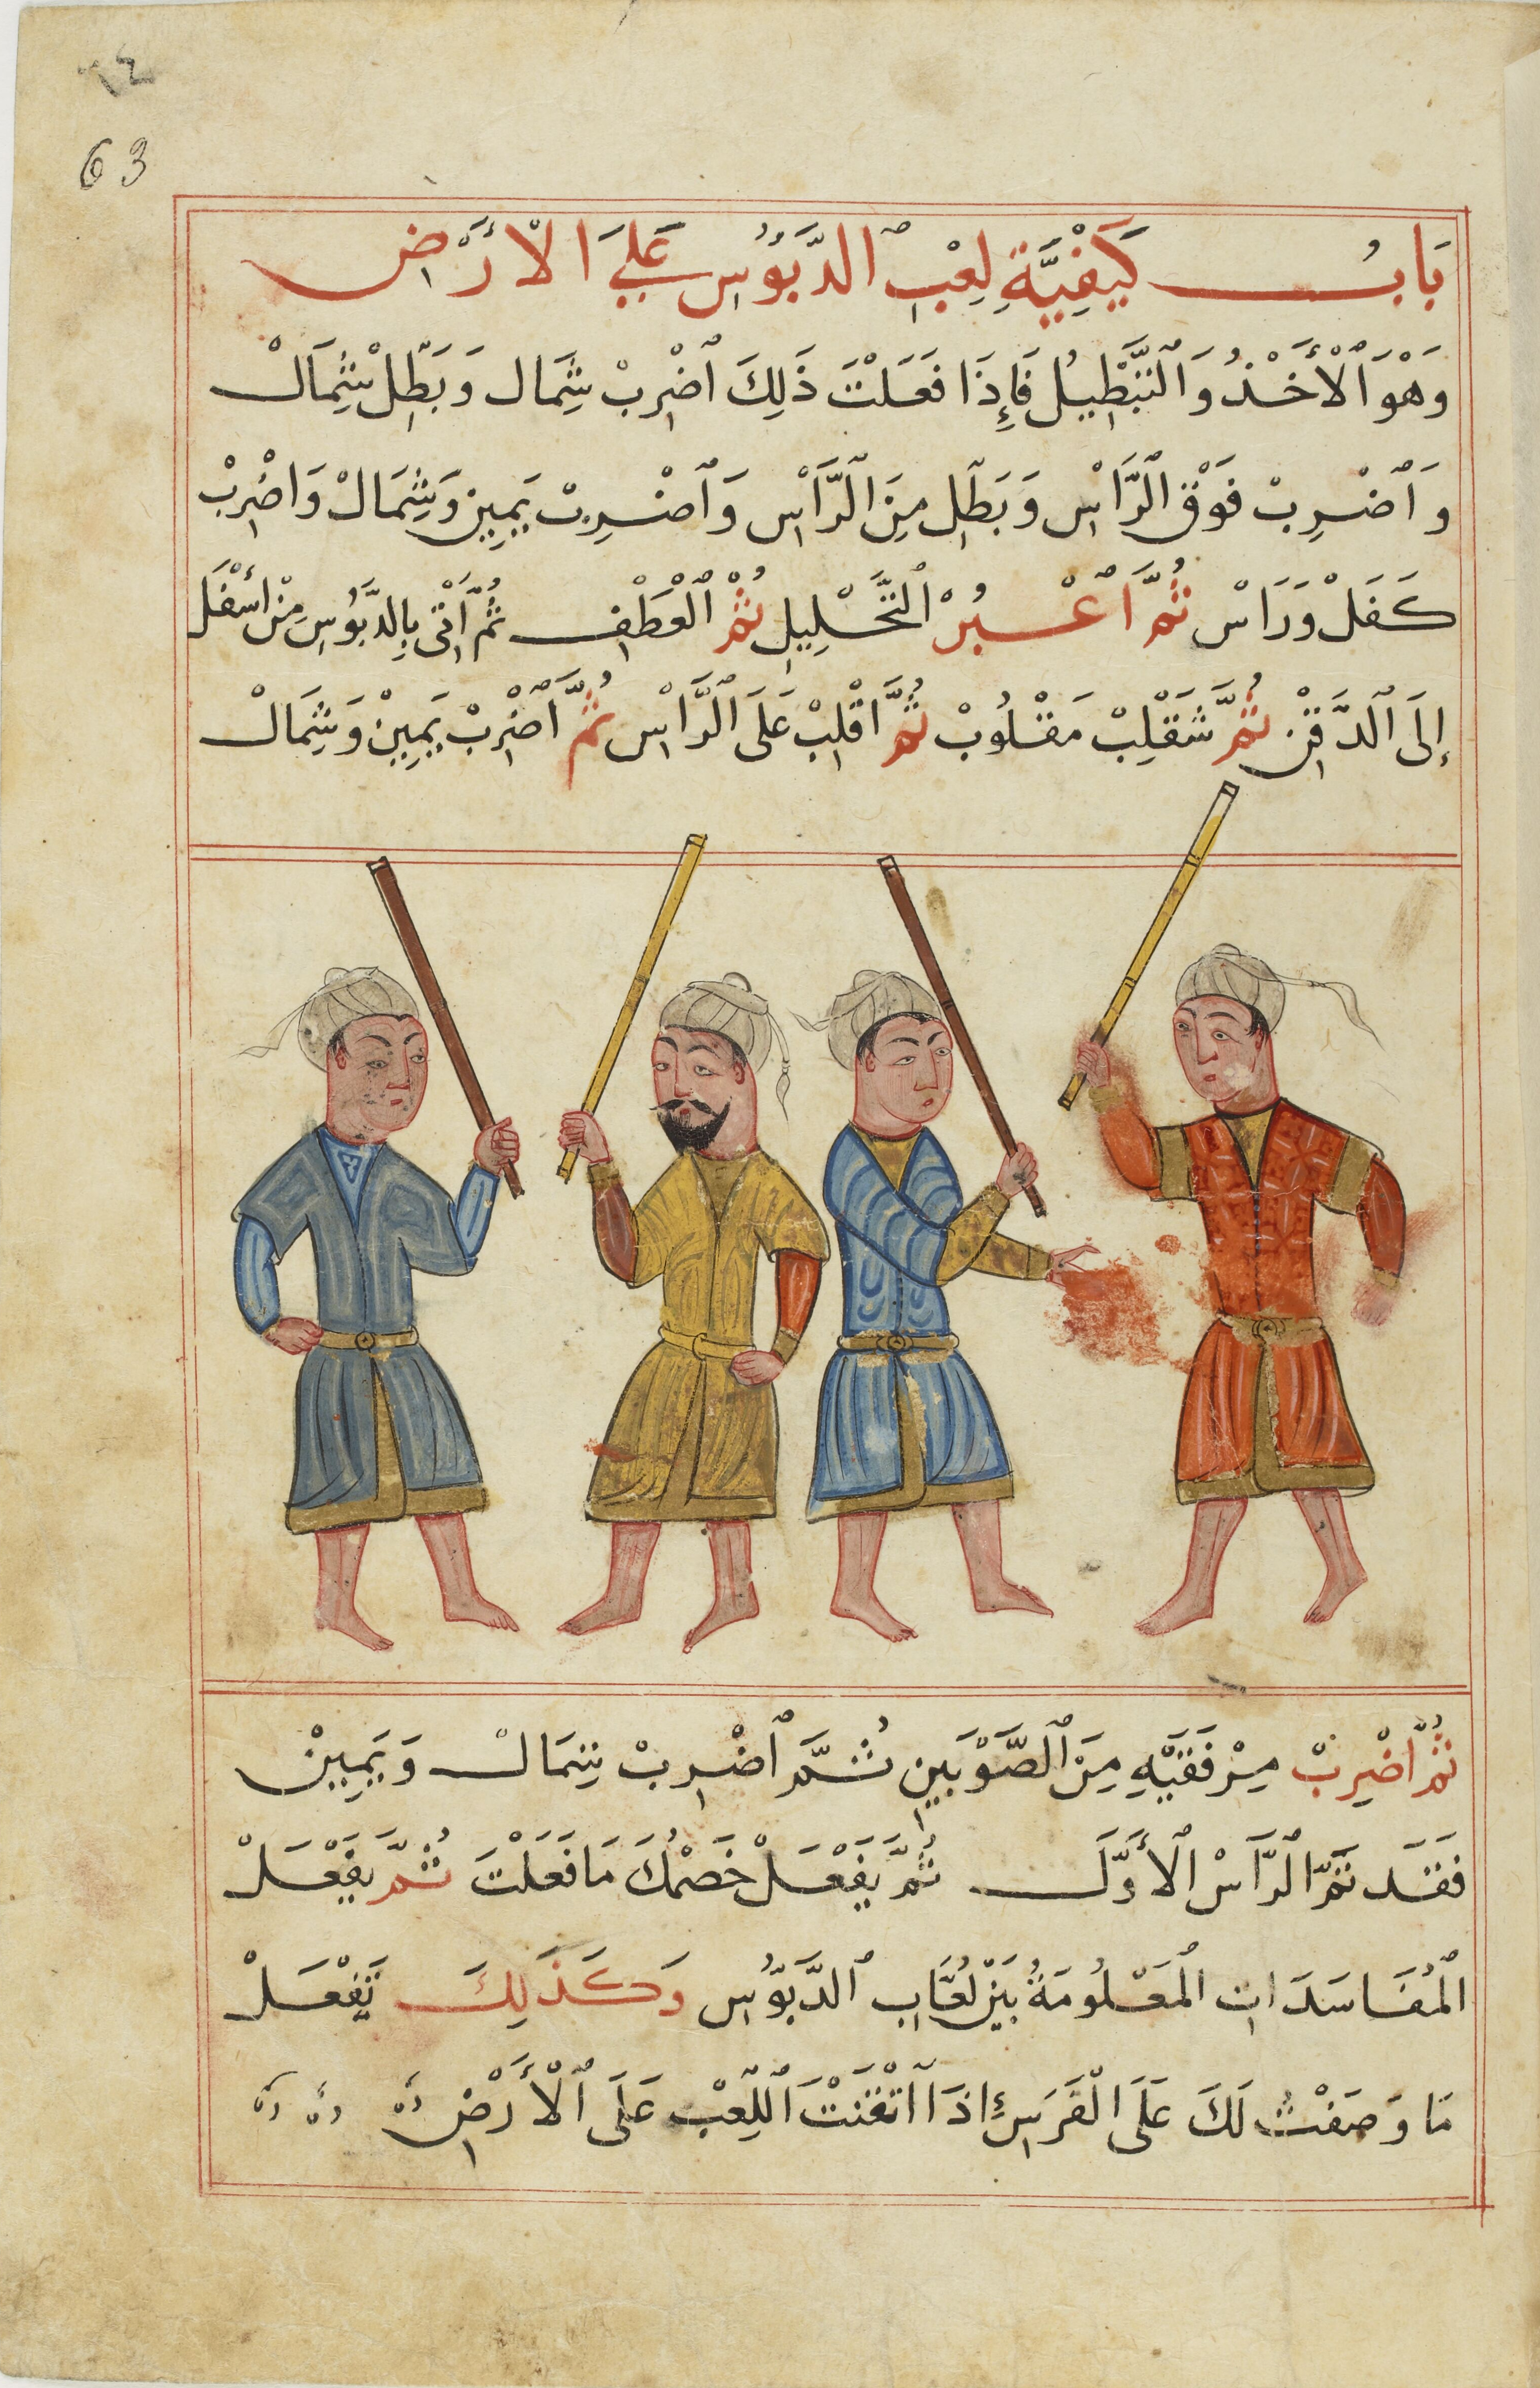 ٦٤
63
بَابُ كَيْفِيَّةِ لِعْبِ ٱلدَّبُّوسِ عَلَي الْأَرْضِ
وَهْوَ ٱلْأَخْذُ وَٱلتَّبْطِيلُ فَإِذَا فَعَلْتَ ذَلِكَ ٱضْرِبْ شِمَال وَبَطِّلْ شِمَالْ
وَٱضْرِبْ فَوْقَ ٱلرَّاْسِ وَبَطِّلِ مِنَ ٱلرَّاْسِ وَٱضْرِبْ يَمِينْ وَشِمَالْ وَاضْرِبْ
كَفَلْ وَرَاسْ ثُمَّ ٱعْبُرْ ٱلتَّحْلِيلِ ثُمَّ ٱلْعَطْفِ ثُمَّ ٱتْنِى بِالدَّبُّوسِ مِنْ أَسْفَلْ
إِلَى ٱلدَّقْنِ ثُمَّ شَقْلِبْ مَقْلُوبْ ثُمَّ اقْلِبْ عَلَى ٱلرَّاْسِ ثُمَّ ٱضْرِبْ يَمِينْ وَشِمَالْ
ثُمَّ اضْرِبْ مِرْفَقَيْهِ مِنَ ٱلصَّوْبَيْنِ ثُمَّ ٱضْرِبْ شِمَالْ وَيَمِينْ
فَقَد تَمَّ ٱلرَّاسْ ٱلأَوَّلَ ثُمَّ يَفْعَلْ خَصْمُكَ مَا فَعَلْتَ ثُمَّ يَفْعَلْ
ٱلْمُفَاسَدَاتِ ٱلْمَعْلُومَةُ بَيْنَ لُعَّابِ ٱلدَّبُّوسِ وَكَذَلِكَ تَفْعَلْ
مَا وَصَفْتُ لَكَ عَلَى الْفَرَسِ إِذَا ٱتْقَنْتَ ٱللِّعْبَ عَلَى ٱلْأَرْضِ